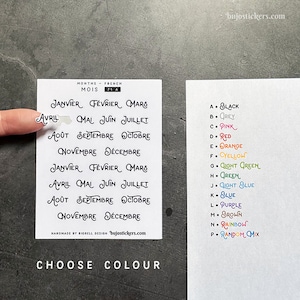 bujostickers.com
MONTHS • FRENCH
MOIS
Janvier Février Mars
Avril Mai Juin Juillet
Août Septembre Octobre
Novembre Décembre
Janvier Février Mars
Avril Mai Juin Juillet
Août Septembre Octobre
Novembre Décembre
HANDMADE BY BIGBELL DESIGN bujostickers.com
A • Black
B • Grey
C • Pink
D • Red
E • Orange
F • Yellow
G • Light Green
H • Green
J • Light Blue
K • Blue
L • Purple
M • Brown
N • Rainbow
P • Random Mix
CHOOSE COLOUR